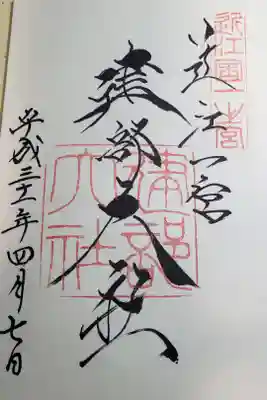 近江國一宮
近江一宮
建部大社
建部大社
平成三十一年四月七日